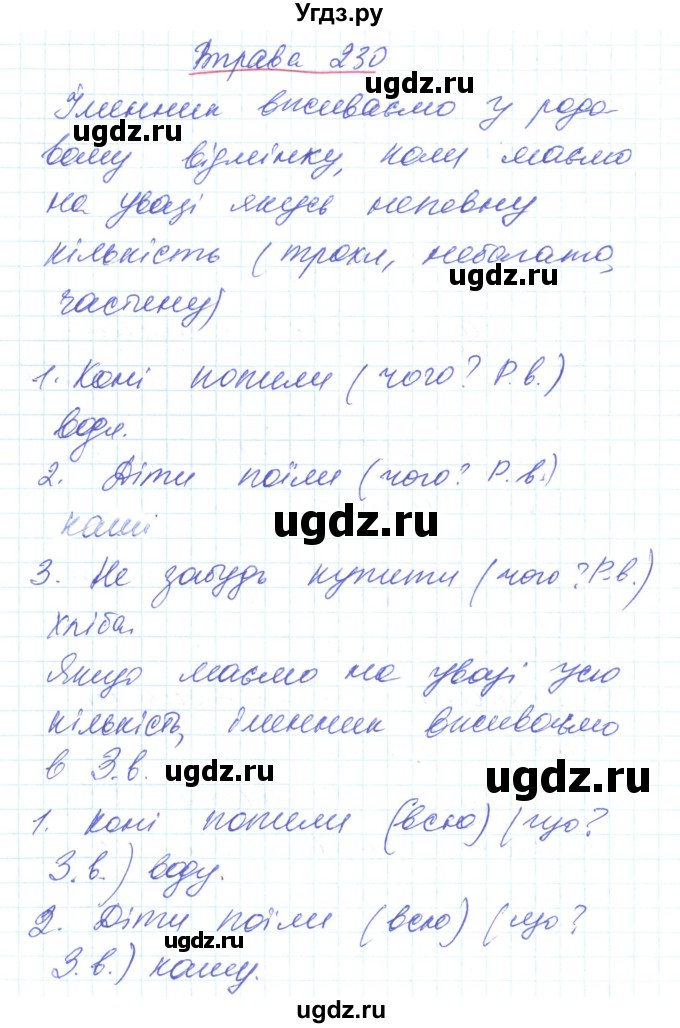 Угдз.ру
Вправа 230
ugdz.ru
Іменник вживаємо у родо-
ugdz.ru
вому відмінку, коли маємо
на увазі якусь непевну
кількість (трохи, небагато,
ugdz.ru
частину)
1. Коні попили (чого? Р.в.)
води.
2. Діти поїли (чого? Р.в.)
каші
ugdz.ru
3. Не забудь купити (чого? Р.в.)
хліба.
Якщо маємо на увазі усю
кількість, іменник вживаємо
в З.в.
ugdz.ru
ugdz.ru
1. Коні попили (всю) (що?
З.в.) воду.
2. Діти поїли (всю) (що?
ugdz.ru
З.в.) кашу.
ugdz.ru